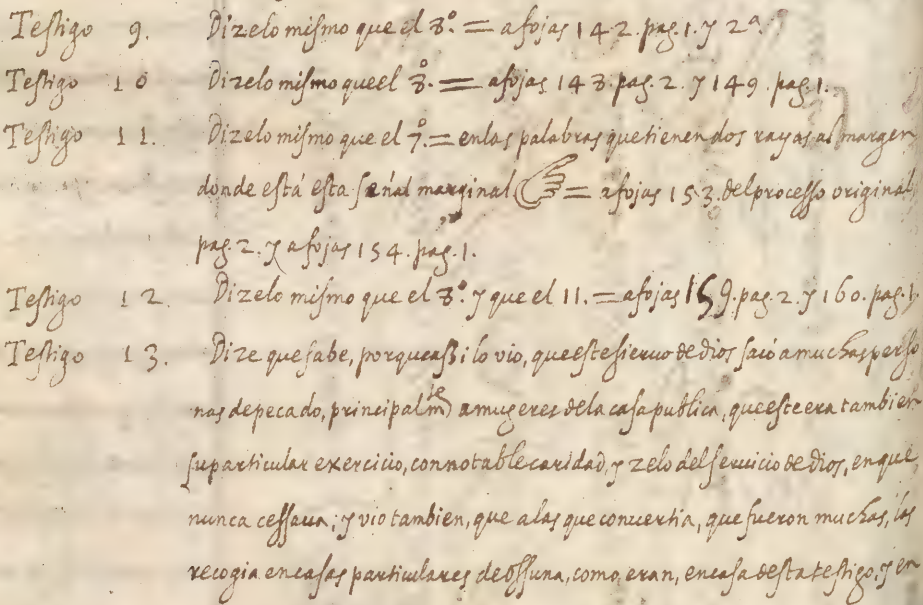 Testigo 9. Dizelo mismo que el 8º. = a fojas 142. pag. 1. y 2ª.
Testigo 10 Dizelo mismo que el 8º. = a fojas 148. pag. 2. y 149. pag. 1.
Testigo 11. Dizelo mismo que el 7º. = en las palabras que tienen dos rayas al margen
donde está esta señal marginal = a fojas 153. del processo original
pag. 2. y a fojas 154. pag. 1.
Testigo 12. Dizelo mismo que el 8º. y que el 11. = a fojas 159. pag. 2. y 160. pag. 1.
Testigo 13. Dize que sabe, porque assi lo vio, que este sieruo de Dios sacó a muchas perso
nas de pecado, principalmte a mugeres de la casa publica, que este era tambien
su particular exercicio, con notable caridad, y zelo del seruicio de Dios, en que
nunca cessaua; y vio tambien, que a las que conuertia, que fueron muchas, las
recogia en casas particulares de Ossuna, como, eran, en casa desta testigo, y en